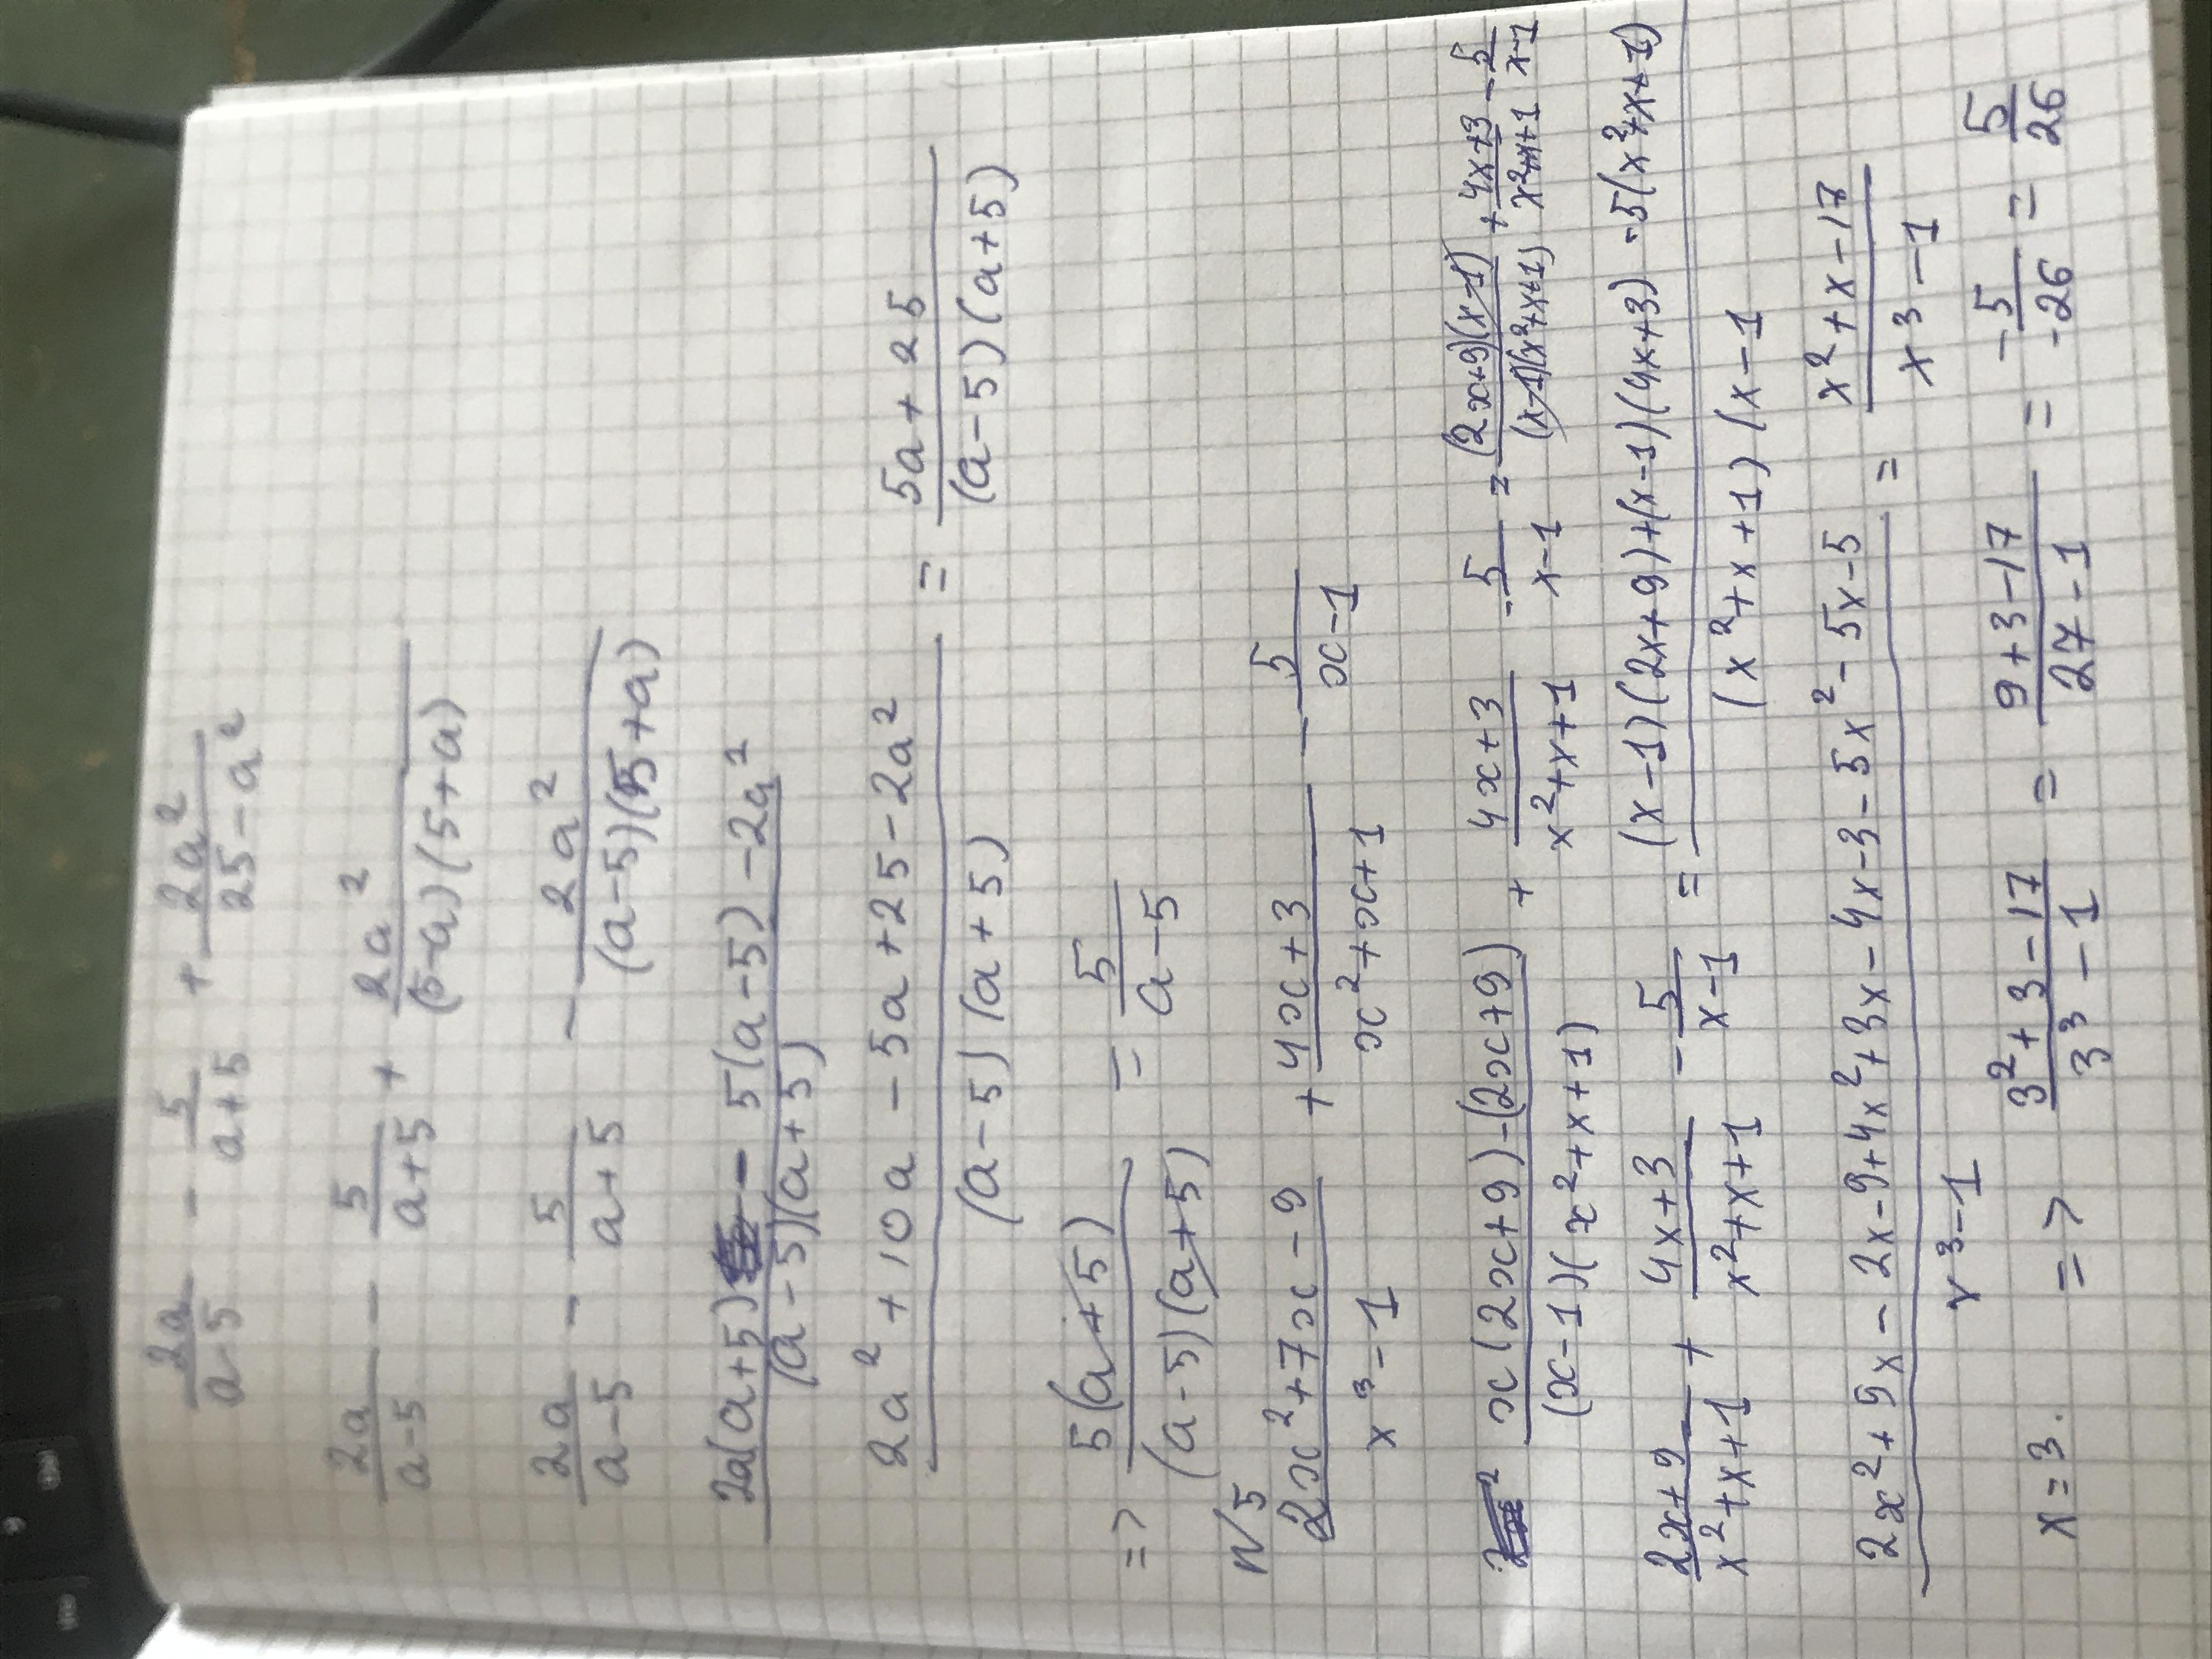 2a/(a-5) - 5/(a+5) + 2a²/(25-a²)
2a/(a-5) - 5/(a+5) + 2a²/((5-a)(5+a))
2a/(a-5) - 5/(a+5) - 2a²/((a-5)(5+a))
(2a(a+5) - 5(a-5) - 2a²)/((a-5)(a+5))
(2a² + 10a - 5a + 25 - 2a²)/((a-5)(a+5)) = (5a + 25)/((a-5)(a+5))
=> 5(a+5)/((a-5)(a+5)) = 5/(a-5)
N5
(2x² + 7x - 9)/(x³ - 1) + (4x+3)/(x²+x+1) - 5/(x-1)
(x(2x+9)-(2x+9))/((x-1)(x²+x+1)) + (4x+3)/(x²+x+1) - 5/(x-1) = ((2x+9)(x-1))/((x-1)(x²+x+1)) + (4x+3)/(x²+x+1) - 5/(x-1)
(2x+9)/(x²+x+1) + (4x+3)/(x²+x+1) - 5/(x-1) = ((x-1)(2x+9)+(x-1)(4x+3) - 5(x²+x+1))/((x²+x+1)(x-1
(2x²+9x-2x-9+4x²+3x-4x-3-5x²-5x-5)/(x³-1) = (x²+x-17)/(x³-1)
x=3. => (3²+3-17)/(3³-1) = (9+3-17)/(27-1) = -5/-26 = 5/26